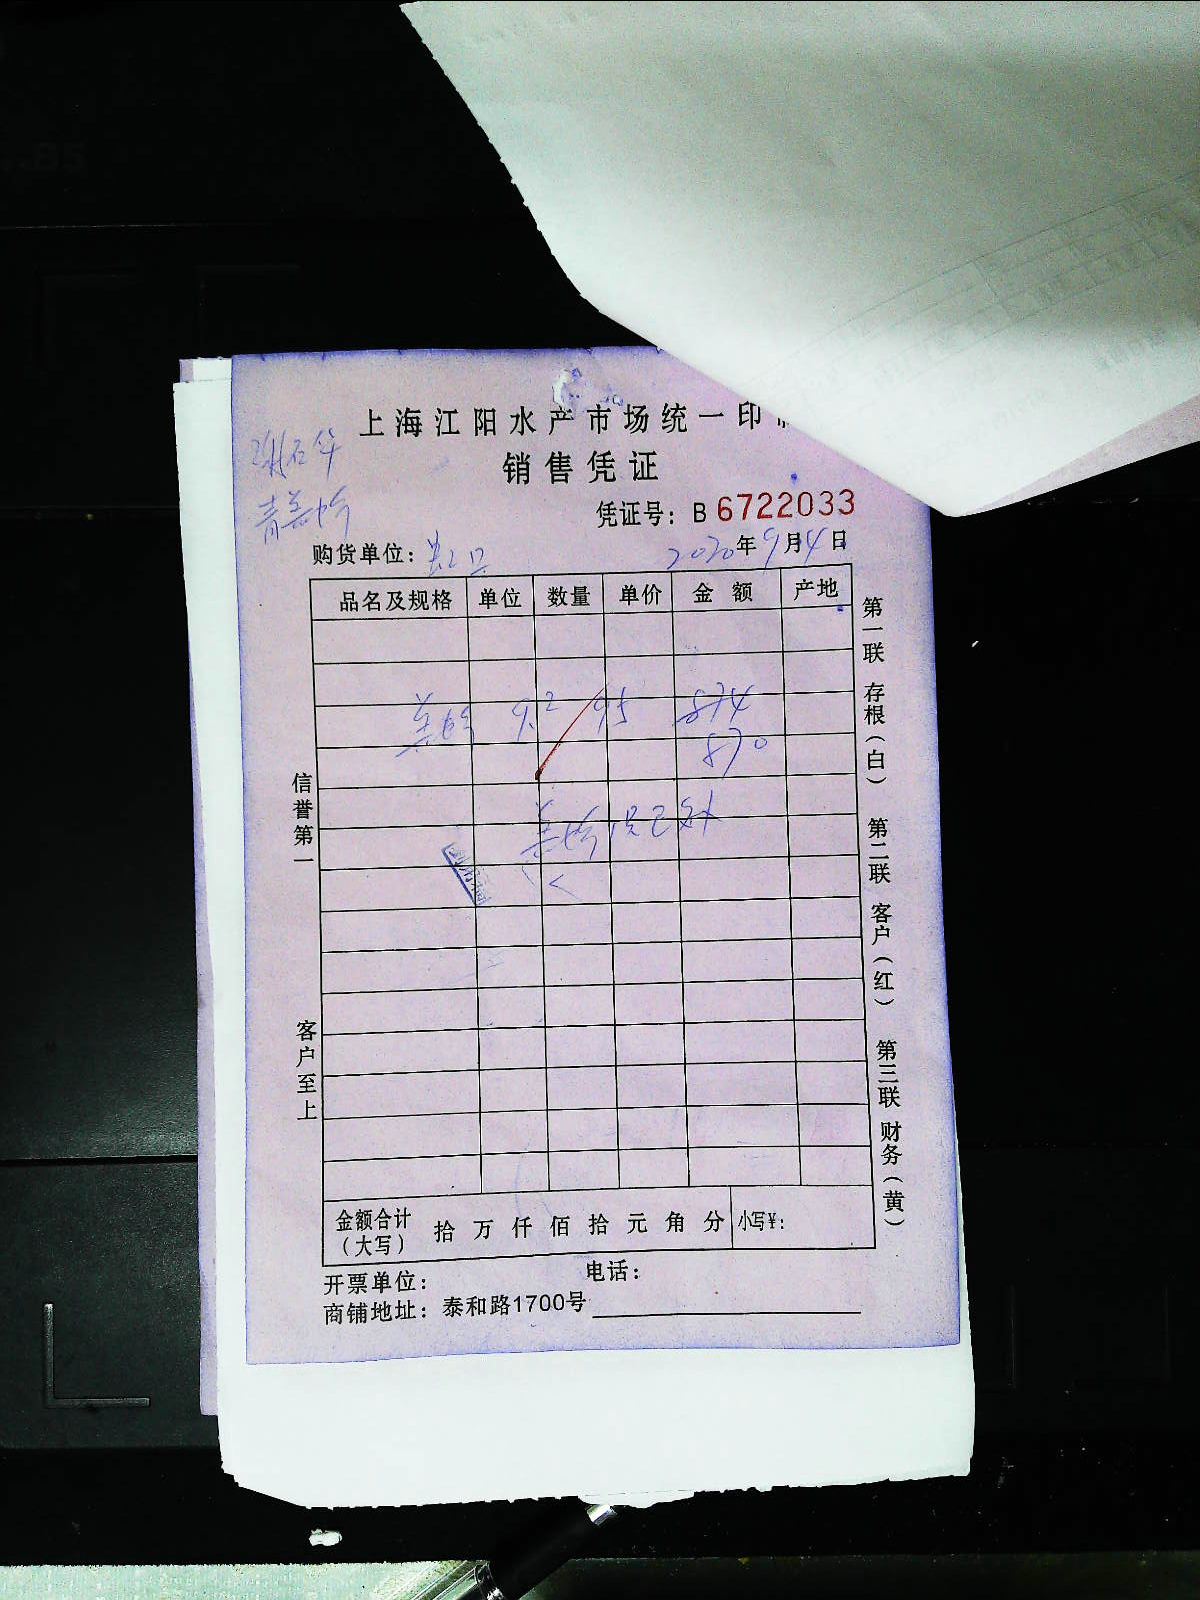 上海江阳水产市场统一印
销售凭证
凭证号：B 6722033
购货单位：
2020年9月4日
品名及规格 单位 数量 单价 金额 产地
9.2 95 874
870
信誉第一
客户至上
第一联 存根（白） 第二联 客户（红） 第三联 财务（黄）
金额合计（大写） 拾 万 仟 佰 拾 元 角 分 小写¥：
开票单位： 电话：
商铺地址：泰和路1700号